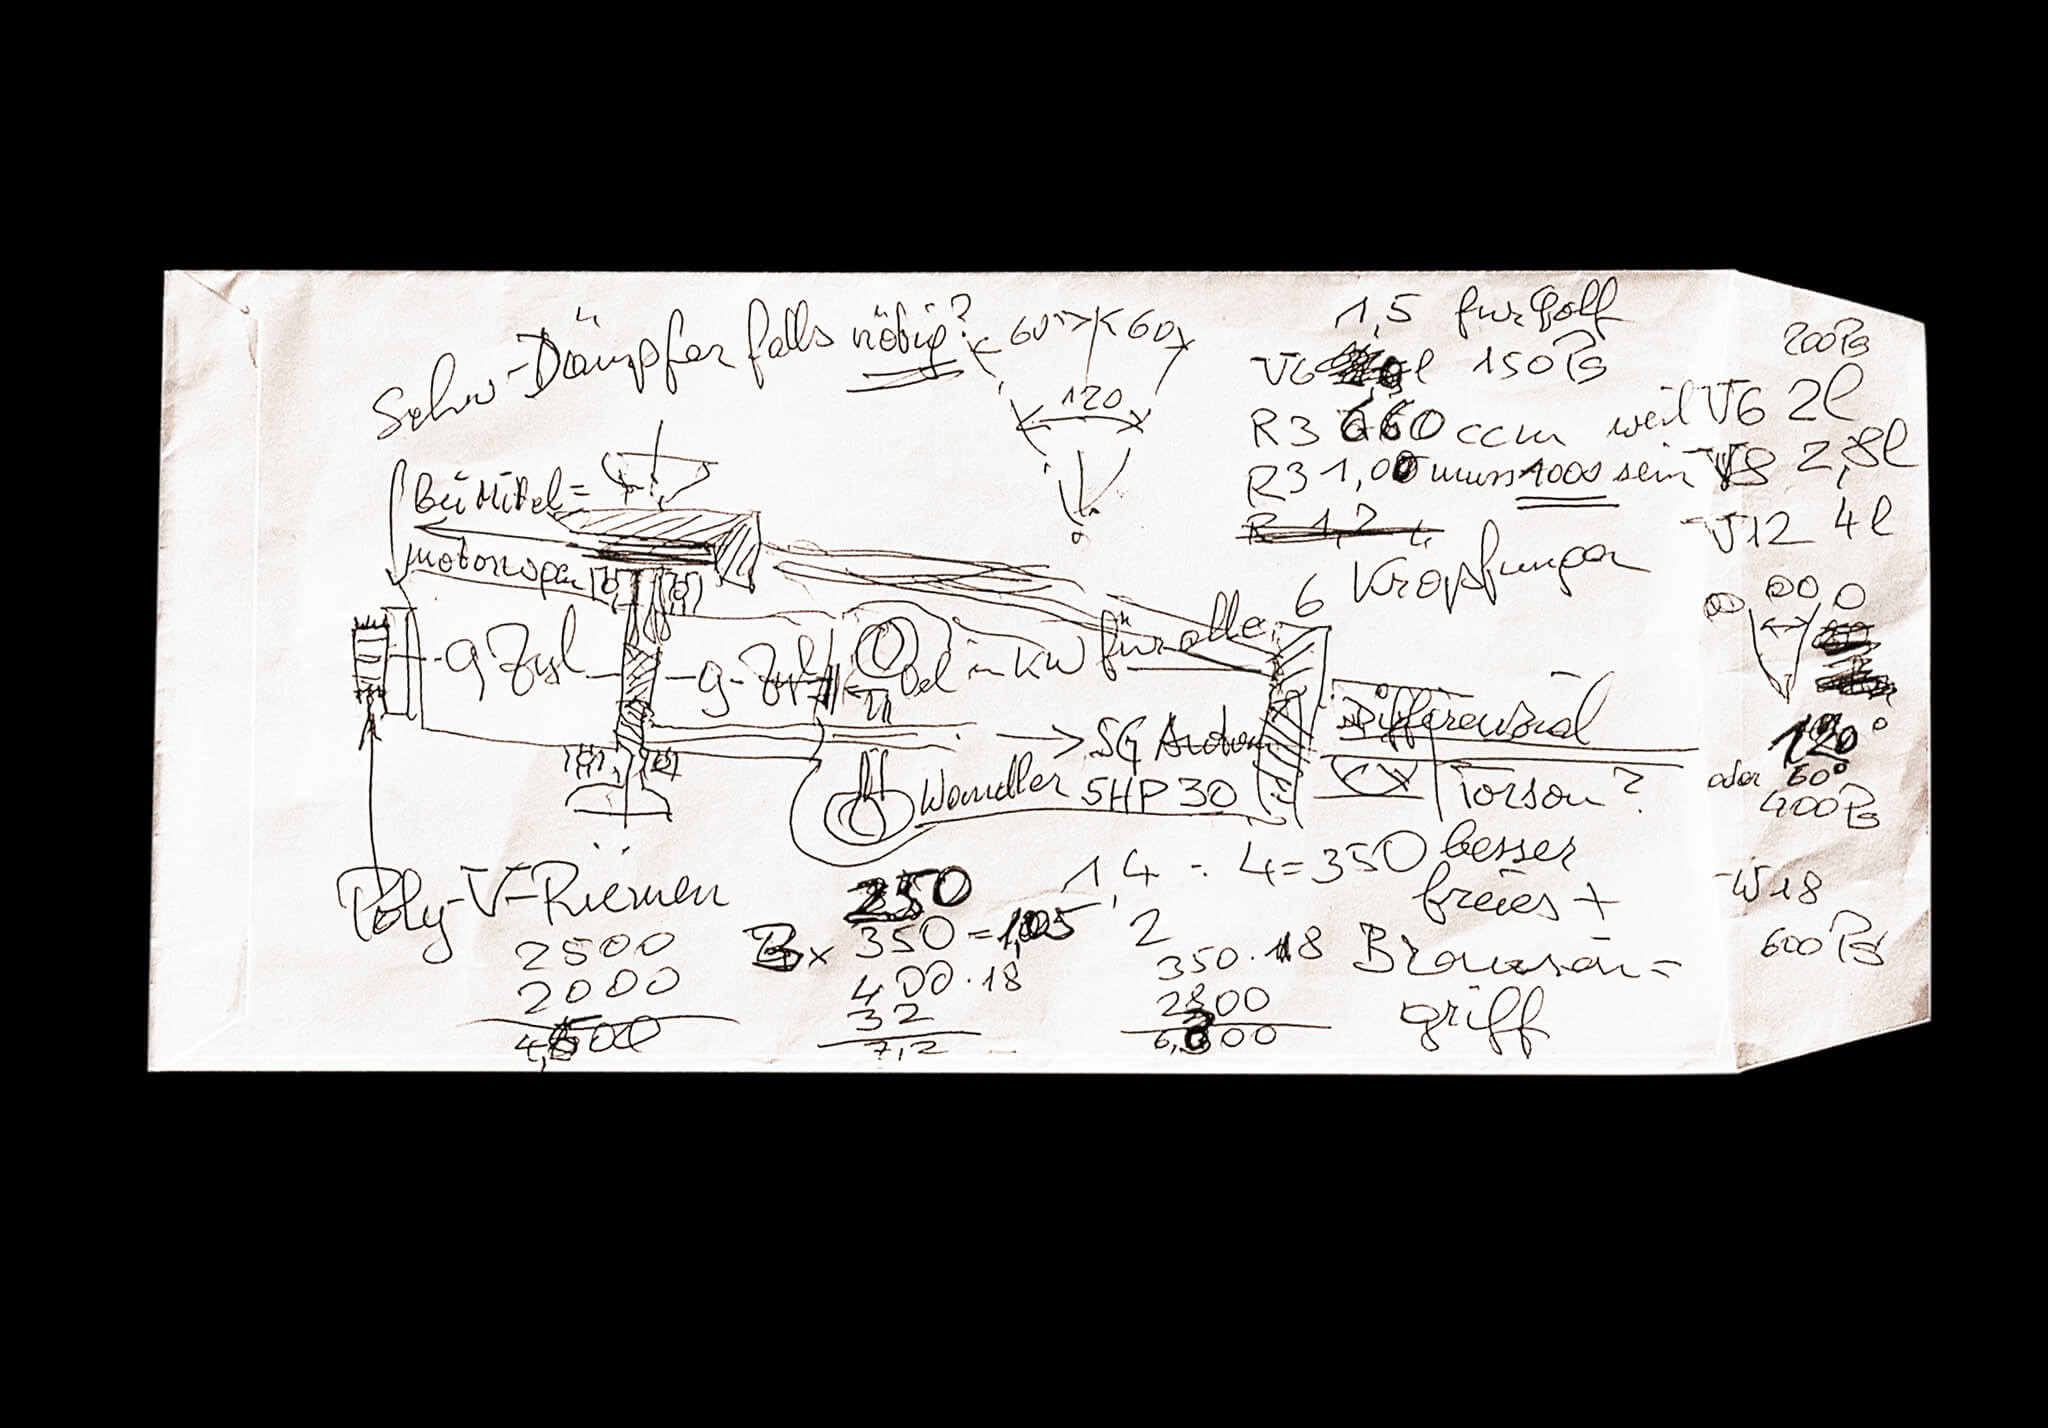 Schw-Dämpfer falls nötig?
60° 60
120
1,5 für Golf
V6 l 150 PS
R3 660 ccm weil V6 2l
R3 1,00 muss 1000 sein V8 2,8l
R 1,2
V12 4l
6 Kröpfungen
200 PS
Bei Mittel=
motorwagen
9 Zyl
9-Zyl
Öl in KW für alle
SG Audi
Wandler 5HP30
Differenzial
Torson?
120°
oder 60°
400 PS
W18
600 PS
Poly-V-Riemen
2500
2000
4,500
250
3x 350 = 1,05
400.18
32
7,2
1,4 : 4 = 350
2
350.18
2800
6,300
besser
freies +
Browsen=
griff